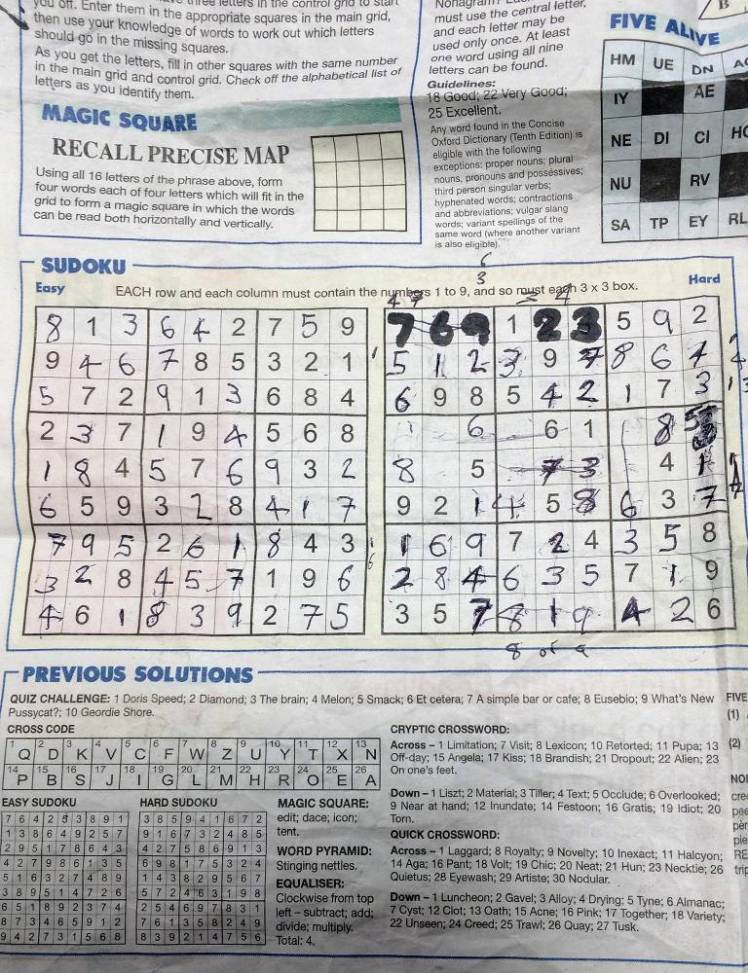 you off. Enter them in the appropriate squares in the main grid,
then use your knowledge of words to work out which letters
should go in the missing squares.
As you get the letters, fill in other squares with the same number
in the main grid and control grid. Check off the alphabetical list of
letters as you identify them.
MAGIC SQUARE
RECALL PRECISE MAP
Using all 16 letters of the phrase above, form
four words each of four letters which will fit in the
grid to form a magic square in which the words
can be read both horizontally and vertically.
must use the central letter,
and each letter may be
used only once. At least
one word using all nine
letters can be found.
Guidelines:
18 Good; 22 Very Good;
25 Excellent.
Any word found in the Concise
Oxford Dictionary (Tenth Edition) is
eligible with the following
exceptions: proper nouns; plural
nouns, pronouns and possessives;
third person singular verbs;
hyphenated words; contractions
and abbreviations; vulgar slang
words; variant spellings of the
same word (where another variant
is also eligible).
FIVE ALIVE
HM UE DN
IY AE
NE DI CI
NU RV
SA TP EY RL
SUDOKU
Easy EACH row and each column must contain the numbers 1 to 9, and so must each 3 x 3 box. Hard
8 1 3 6 4 2 7 5 9
9 4 6 7 8 5 3 2 1
5 7 2 9 1 3 6 8 4
2 3 7 1 9 4 5 6 8
1 8 4 5 7 6 9 3 2
6 5 9 3 2 8 4 1 7
7 9 5 2 6 1 8 4 3
3 2 8 4 5 7 1 9 6
4 6 1 8 3 9 2 7 5
7 6 9 1 2 3 5 9 2
5 1 2 3 9 8 6 4
6 9 8 5 4 2 1 7 3
6 6 1 8
8 5 7 3 4
9 2 1 4 5 8 6 3 7
1 6 9 7 2 4 3 5 8
2 8 4 6 3 5 7 1 9
3 5 7 8 1 9 4 2 6
8 or 9
PREVIOUS SOLUTIONS
QUIZ CHALLENGE: 1 Doris Speed; 2 Diamond; 3 The brain; 4 Melon; 5 Smack; 6 Et cetera; 7 A simple bar or cafe; 8 Eusebio; 9 What's New
Pussycat?; 10 Geordie Shore.
CROSS CODE
1 Q 2 D 3 K 4 V 5 C 6 F 7 W 8 Z 9 U 10 Y 11 T 12 X 13 N
14 P 15 B 16 S 17 J 18 I 19 G 20 L 21 M 22 H 23 R 24 O 25 E 26 A
EASY SUDOKU
7 6 4 2 5 3 8 9 1
1 3 8 6 4 9 2 5 7
2 9 5 1 7 8 6 4 3
4 2 7 9 8 6 1 3 5
5 1 6 3 2 7 4 8 9
3 8 9 5 1 4 7 2 6
6 5 1 8 9 2 3 7 4
8 7 3 4 6 5 9 1 2
9 4 2 7 3 1 5 6 8
HARD SUDOKU
3 8 5 9 4 1 6 7 2
9 1 6 7 3 2 4 8 5
4 2 7 5 8 6 9 1 3
6 9 8 1 7 5 3 2 4
1 4 3 8 2 9 5 6 7
5 7 2 4 6 3 1 9 8
2 5 4 6 9 7 8 3 1
7 6 1 3 5 8 2 4 9
8 3 9 2 1 4 7 5 6
MAGIC SQUARE:
edit; dace; icon;
tent.
WORD PYRAMID:
Stinging nettles.
EQUALISER:
Clockwise from top
left – subtract; add;
divide; multiply.
Total: 4.
CRYPTIC CROSSWORD:
Across – 1 Limitation; 7 Visit; 8 Lexicon; 10 Retorted; 11 Pupa; 13
Off-day; 15 Angela; 17 Kiss; 18 Brandish; 21 Dropout; 22 Alien; 23
On one's feet.
Down – 1 Liszt; 2 Material; 3 Tiller; 4 Text; 5 Occlude; 6 Overlooked;
9 Near at hand; 12 Inundate; 14 Festoon; 16 Gratis; 19 Idiot; 20
Torn.
QUICK CROSSWORD:
Across – 1 Laggard; 8 Royalty; 9 Novelty; 10 Inexact; 11 Halcyon;
14 Aga; 16 Pant; 18 Volt; 19 Chic; 20 Neat; 21 Hun; 23 Necktie; 26
Quietus; 28 Eyewash; 29 Artiste; 30 Nodular.
Down – 1 Luncheon; 2 Gavel; 3 Alloy; 4 Drying; 5 Tyne; 6 Almanac;
7 Cyst; 12 Clot; 13 Oath; 15 Acne; 16 Pink; 17 Together; 18 Variety;
22 Unseen; 24 Creed; 25 Trawl; 26 Quay; 27 Tusk.
FIVE
(1)
(2)